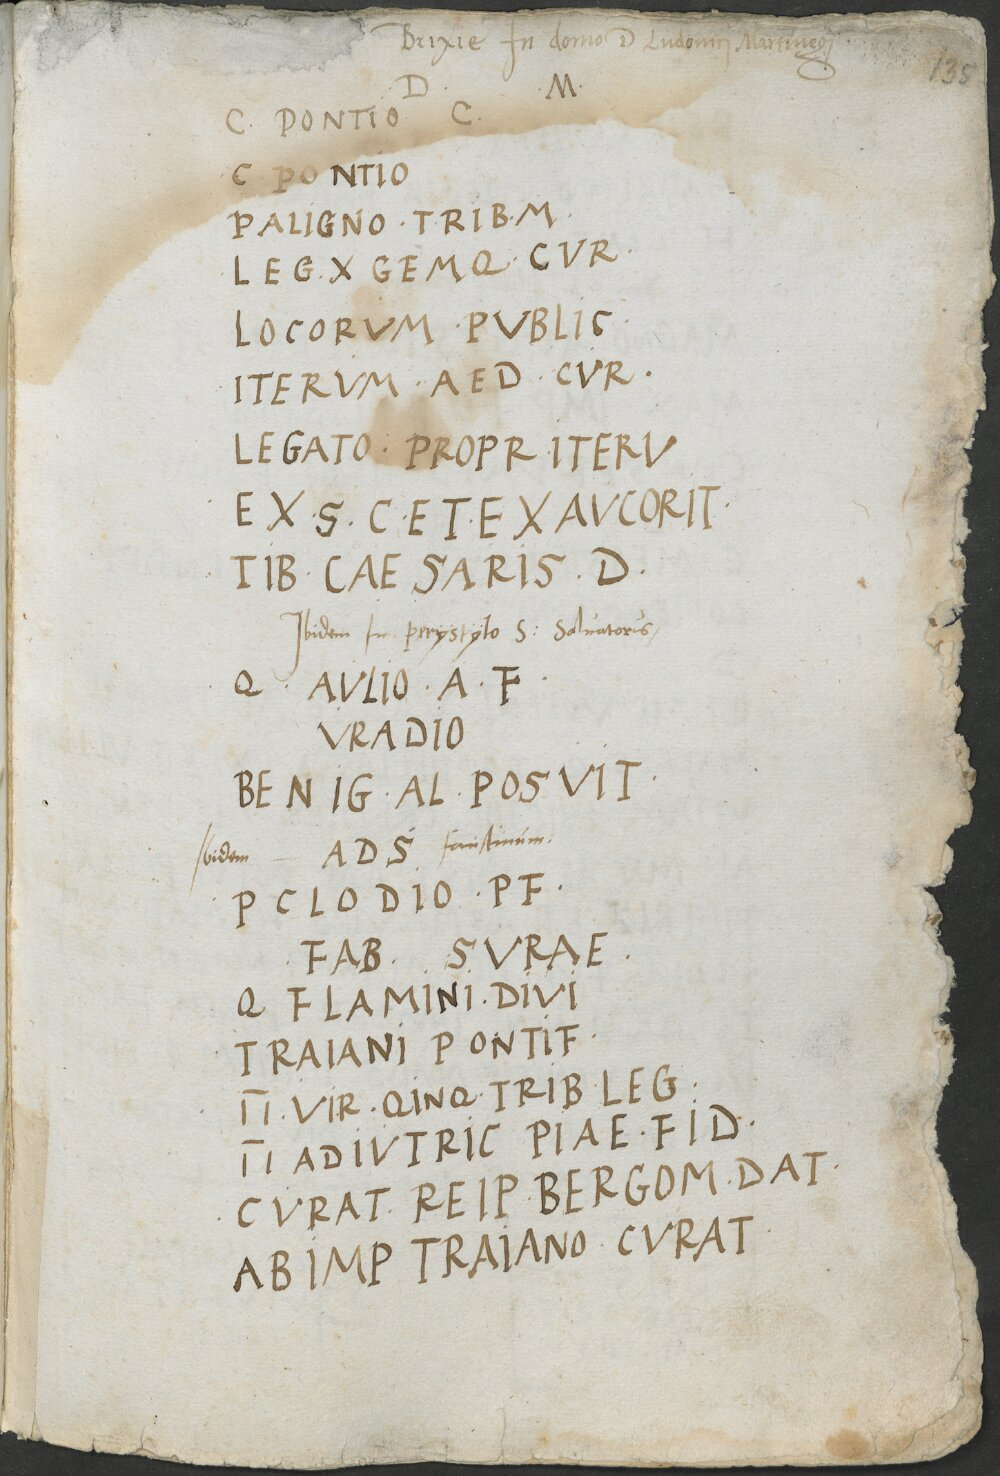 Brixie In domo D Ludovici Martinegi
135
D. M.
C. PONTIO C.
C PONTIO
PALIGNO · TRIB · M ·
LEG · X GEMQ · CVR ·
LOCORVM · PVBLIC ·
ITERVM · AED · CVR ·
LEGATO · PROPR · ITERV
EX · S · C · ET · EX AVCORIT ·
TIB · CAESARIS · D ·
Ibidem In perystylo S: Salvatoris
Q · AVLIO · A · F ·
VRADIO
BENIG · AL · POSVIT ·
Ibidem — AD S faustinum.
P CLODIO · PF ·
· FAB · SVRAE ·
Q FLAMINI · DIVI
TRAIANI PONTIF ·
II · VIR · QINQ · TRIB · LEG ·
II ADIVTRIC PIAE · FID ·
CVRAT · REIP · BERGOM · DAT ·
AB IMP TRAIANO · CVRAT ·